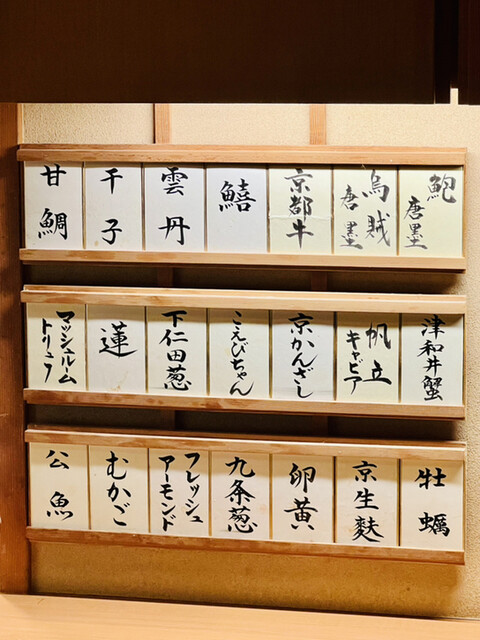 鮑
唐墨
烏賊
唐墨
京都牛
鱚
雲丹
干子
甘鯛
津和井蟹
帆立
キャビア
京かんざし
こえびちゃん
下仁田葱
蓮
マッシュルーム
トリュフ
牡蠣
京生麩
卵黄
九条葱
フレッシュ
アーモンド
むかご
公魚